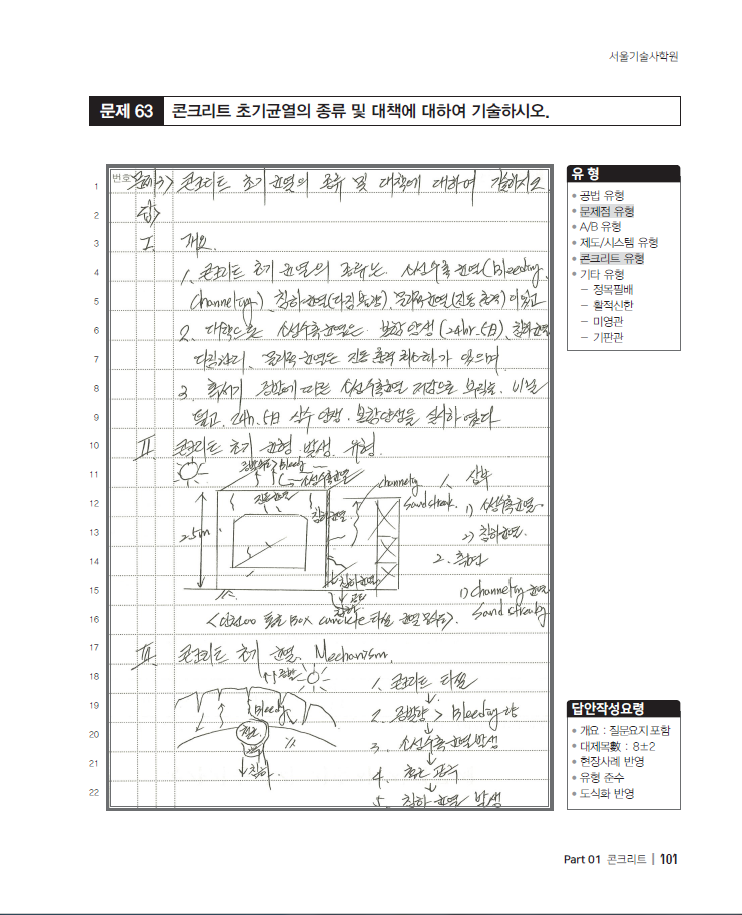 서울기술사학원
문제 63 콘크리트 초기균열의 종류 및 대책에 대하여 기술하시오.
번호 문제3) 콘크리트 초기 균열의 종류 및 대책에 대하여 기술하시오
1
2 답)
3 I. 개요
4 1. 콘크리트 초기 균열의 종류는 소성수축균열(Bleeding,
5 Channeling), 침하균열(다짐불량), 물리적균열(진동 충격)이 있고
6 2. 대책으로 소성수축균열은 보양 양생(24hr. 5日), 침하균열
7 다짐관리, 물리적 균열은 진동 충격 최소화가 있으며
8 3. 혹서기 증발에 따른 소성수축균열 저감으로 부직포, 비닐
9 덮고, 24h. 5日 살수 양생.
10 II. 콘크리트 초기 균열 발생 유형.
11 Bleeding 소성수축균열 channeling 1. 상부
12 Sand streak. 1) 소성수축균열
13 2.5m 침하균열 2) 침하균열.
14 2. 측면
15 침하균열 1) Channeling 균열
16 침하 Box concrete 타설 균열 Sand streaking
17 III. 콘크리트 초기 균열. Mechanism.
18 증발 1. 콘크리트 타설
19 Bleeding 2. 증발량 > Bleeding량
20 철근 3. 소성수축균열 발생
21 침하. 4.
22 5. 침하 균열 발생
유 형
• 공법 유형
• 문제점 유형
• A/B 유형
• 제도/시스템 유형
• 콘크리트 유형
• 기타 유형
– 정목필배
– 활적신한
– 미영관
– 기판관
답안작성요령
• 개요 : 질문요지 포함
• 대제목數 : 8±2
• 현장사례 반영
• 유형 준수
• 도식화 반영
Part 01 콘크리트 | 101